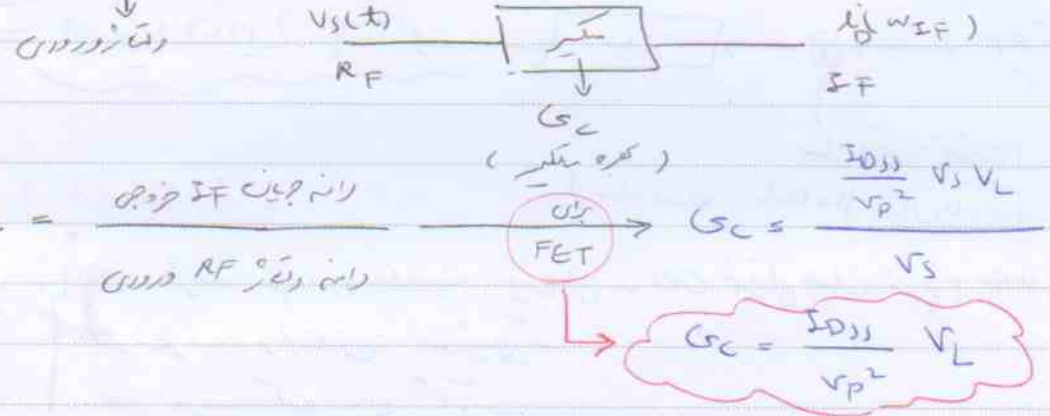 ولتاژ ورودی
Vs(t) میکسر iD(ωIF)
RF IF
Gc
(بهره میکسر)
= دامنه جریان IF خروجی / دامنه ولتاژ RF ورودی برای FET → Gc = (IDSS / Vp² Vs VL) / Vs
Gc = IDSS / Vp² VL